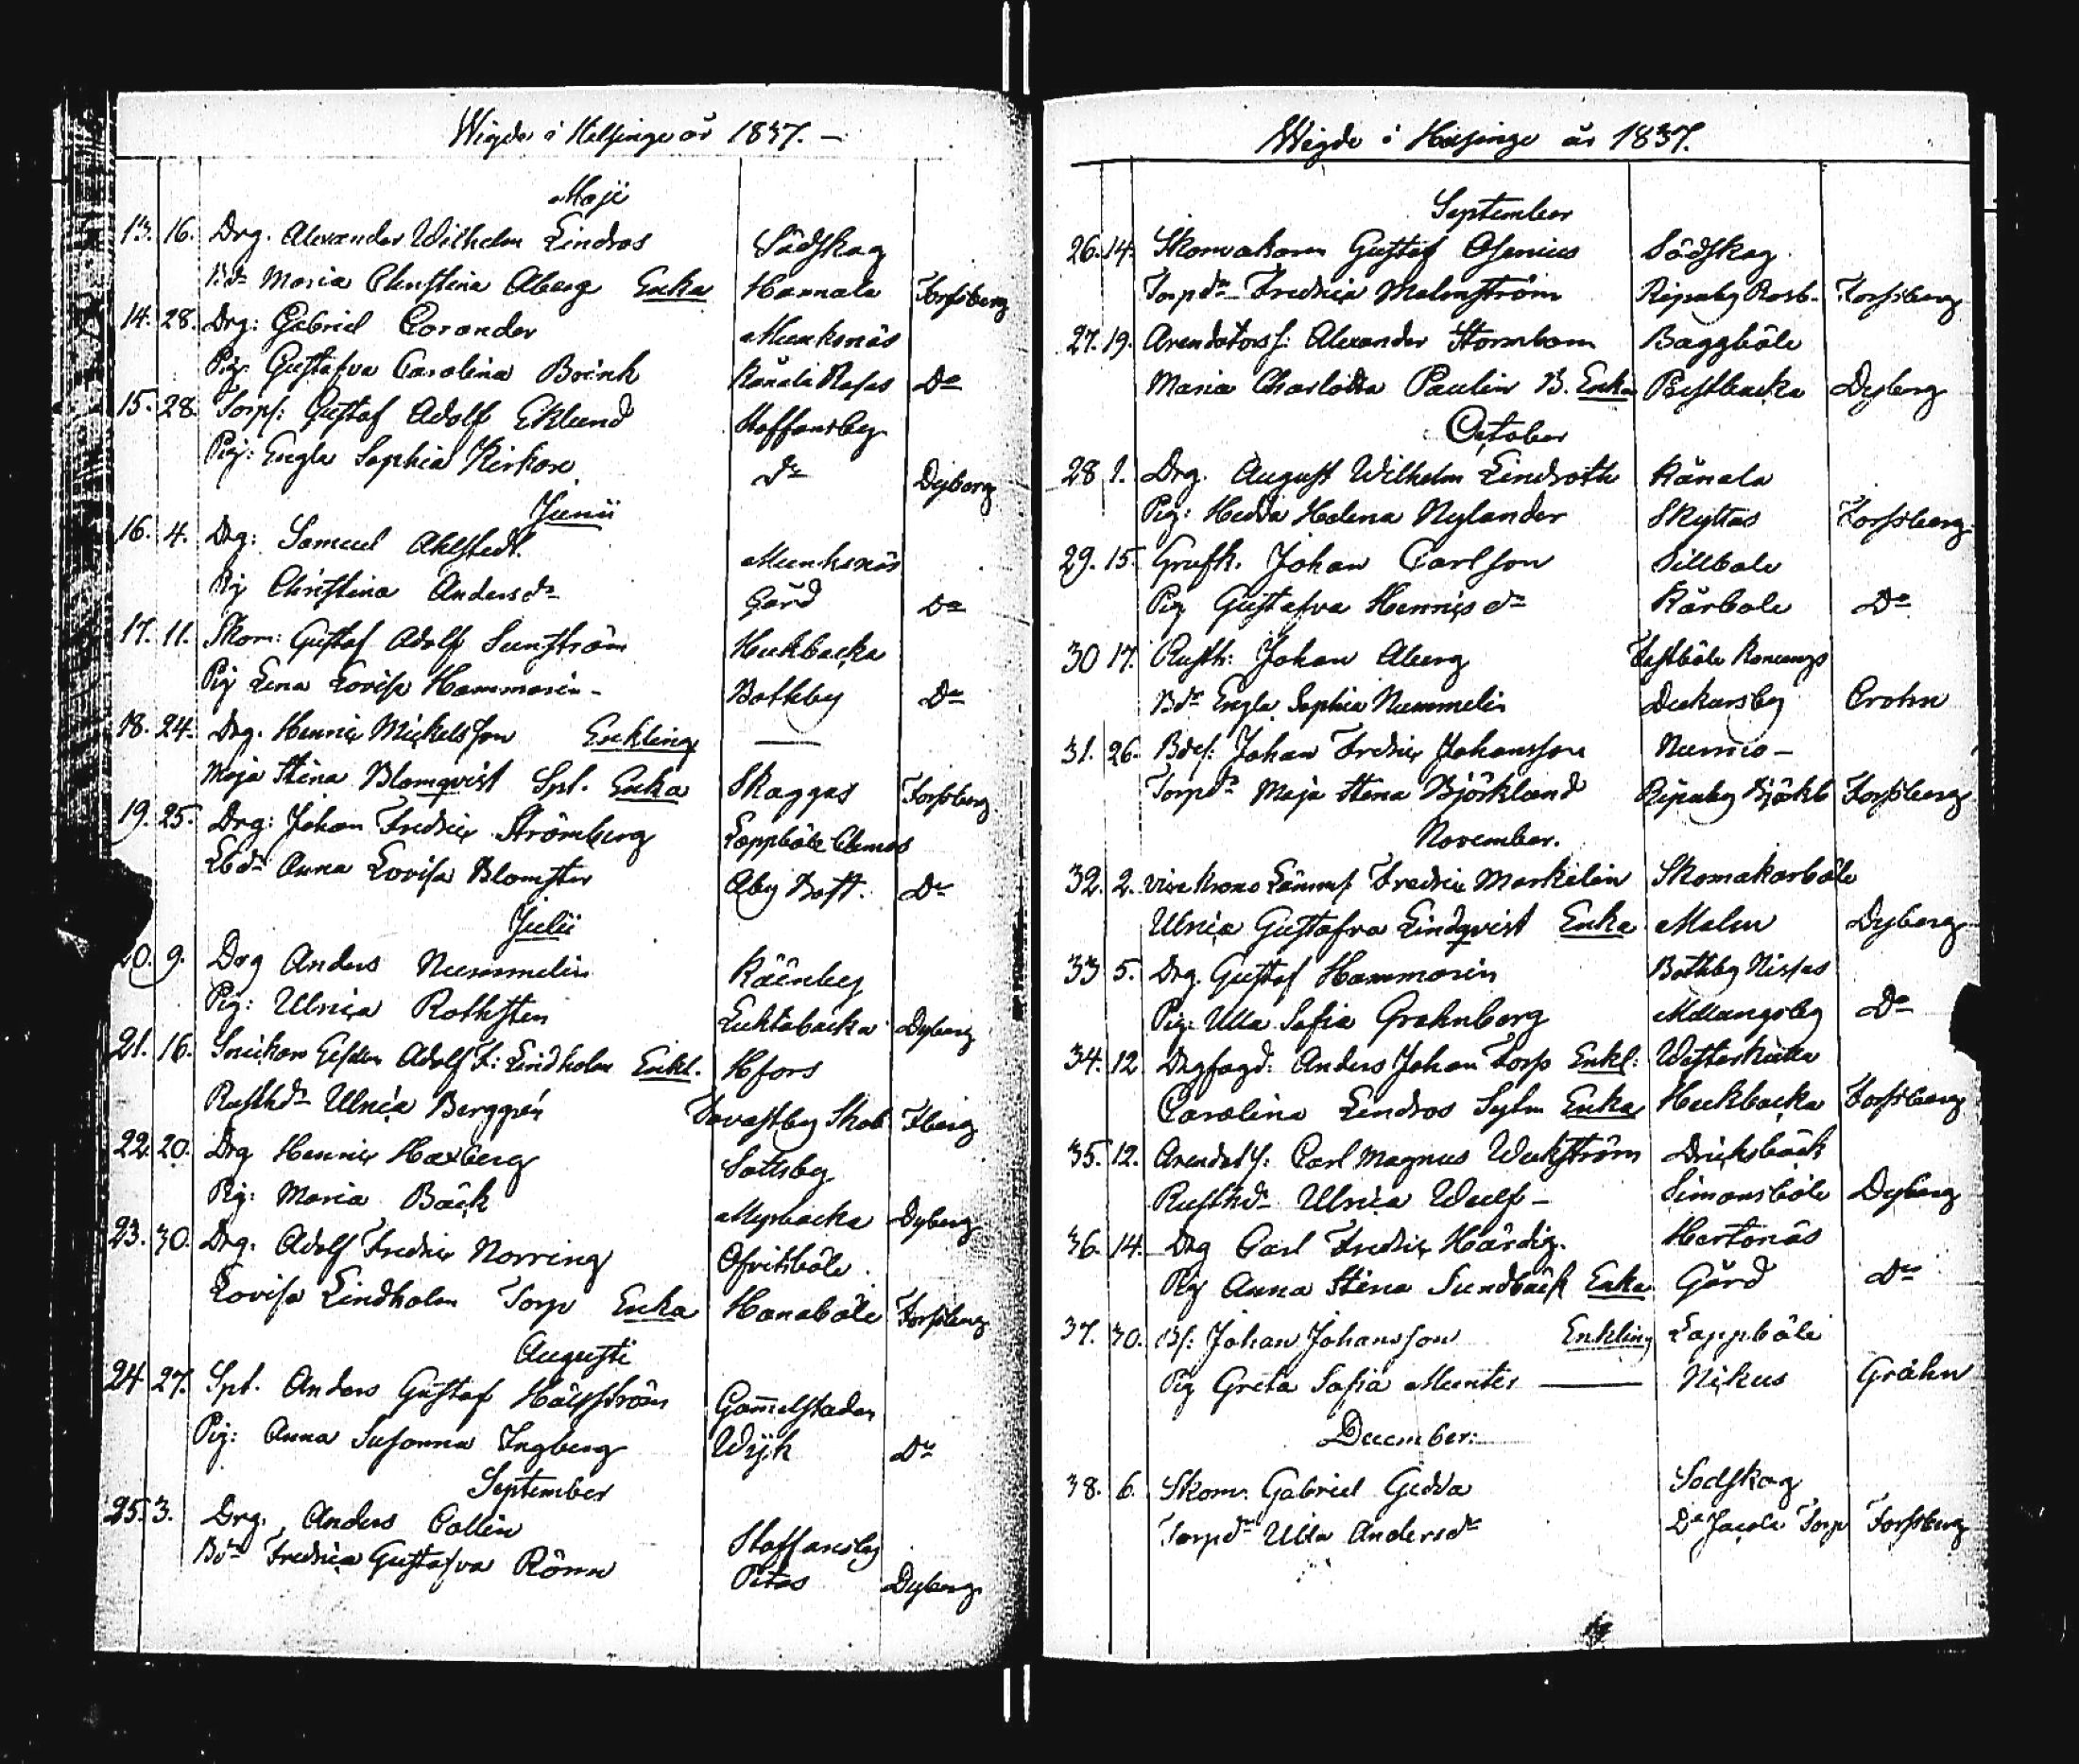 Wigde i Helsinge år 1837. –
Maji
13. 16. Drg. Alexander Wilhelm Lindros Södskog
Bdr Maria Christina Aberg Enka Hannala Forssberg
14. 28. Drg: Gabriel Corander Munksnäs
Pig: Gustafva Carolina Brink Kånala Rafas Do
15. 28. Torps: Gustaf Adolf Eklund Staffansby
Pig: Engla Sophia Kirkon Do Dyberg
Junii
16. 4. Drg: Samuel Ahlstedt Munksnäs
Pig Christina Andersdr Gård Do
17. 11. Skom: Gustaf Adolf Sunström Huckbacka
Pig Lena Lovisa Hammarin – Bothby Do
18. 24. Drg. Henric Mickelsson Enkling —
Maja Stina Blomqvist Spl. Enka Skaggas Forssberg
19. 25. Drg: Johan Fredric Strömberg Lappböle Clemes
Lbdr Anna Lovisa Blomster Aby Bost. Do
Julii
20. 9. Drg Anders Nummelin Råenby
Pig: Ulrica Rothsten Luktabacka Dyberg
21. 16. Snickare Gesellen Adolf F: Lindholm Enkl. Hfors
Rusthdr Ulrica Berggrén Tavastby Skob Fberg
22. 20. Drg Henric Haxberg Sottsby
Pig: Maria Bäck Myrbacka Dyberg
23. 30. Drg. Adolf Fredric Norring Ofvitsböle
Lovisa Lindholm Torp Enka Hanaböle Forssberg
Augusti
24 27. Spt. Anders Gustaf Hällström Gammelstaden
Pig: Anna Susanna Ingberg Wijk Do
September
25. 3. Drg. Anders Collin Staffansby
Bdr Fredrica Gustafva Rönn Pitas Dyberg
Wigde i Helsinge år 1837.
September
26. 14. Skomakaren Gustaf Asenius Södskog
Torpdr Fredrica Malmström Ripuby Rosb. Forssberg
27. 19. Arendators: Alexander Stormbom Baggböle
Maria Charlotta Paulin B. Enka Bistbacka Dyberg
October
28 1. Drg. August Wilhelm Lindroth Kånala
Pig: Hedda Helena Nylander Skyttas Forssberg
29. 15. Grufk. Johan Carlsson Sillbole
Pig Gustafva Henricsdr Kårbole Do
30 17. Rusth: Johan Aberg Fastböle Konungs
Bdr Engla Sophia Nummelin Dickursby Crohn
31. 26. Bdes: Johan Fredric Johansson Numio –
Torpdr Maja Stina Björklund Ripuby Björkb Forssberg
November.
32. 2. Vice Krono Länsm Fredric Markelin Skomakarböle
Ulrica Gustafva Lindqvist Enka Malm Dyberg
33 5. Drg. Gustaf Hammarin Bothby Nissas
Pig: Ulla Sofia Grahnberg Mellungsby Do
34. 12 Drgfogd: Anders Johan Forss Enkl: Westerkulla
Carolina Lindros Sylm Enka Huckbacka Forssberg
35. 12. Arendat s: Carl Magnus Weckström Dricksbäck
Rusthdr Ulrica Wulf – Simonsböle Dyberg
36. 14. Drg Carl Fredric Härdig. Hertonäs
Pig Anna Stina Sundbäck Enka Gård Do
37. 30. Bs: Johan Johansson Enkling Lappböle
Pig Greta Sofia Munter — Nikus Gråhn
December:
38. 6. Skom: Gabriel Gedda Sodskog
Torpdr Ulla Andersdr Do Jacobs Torp Forssberg